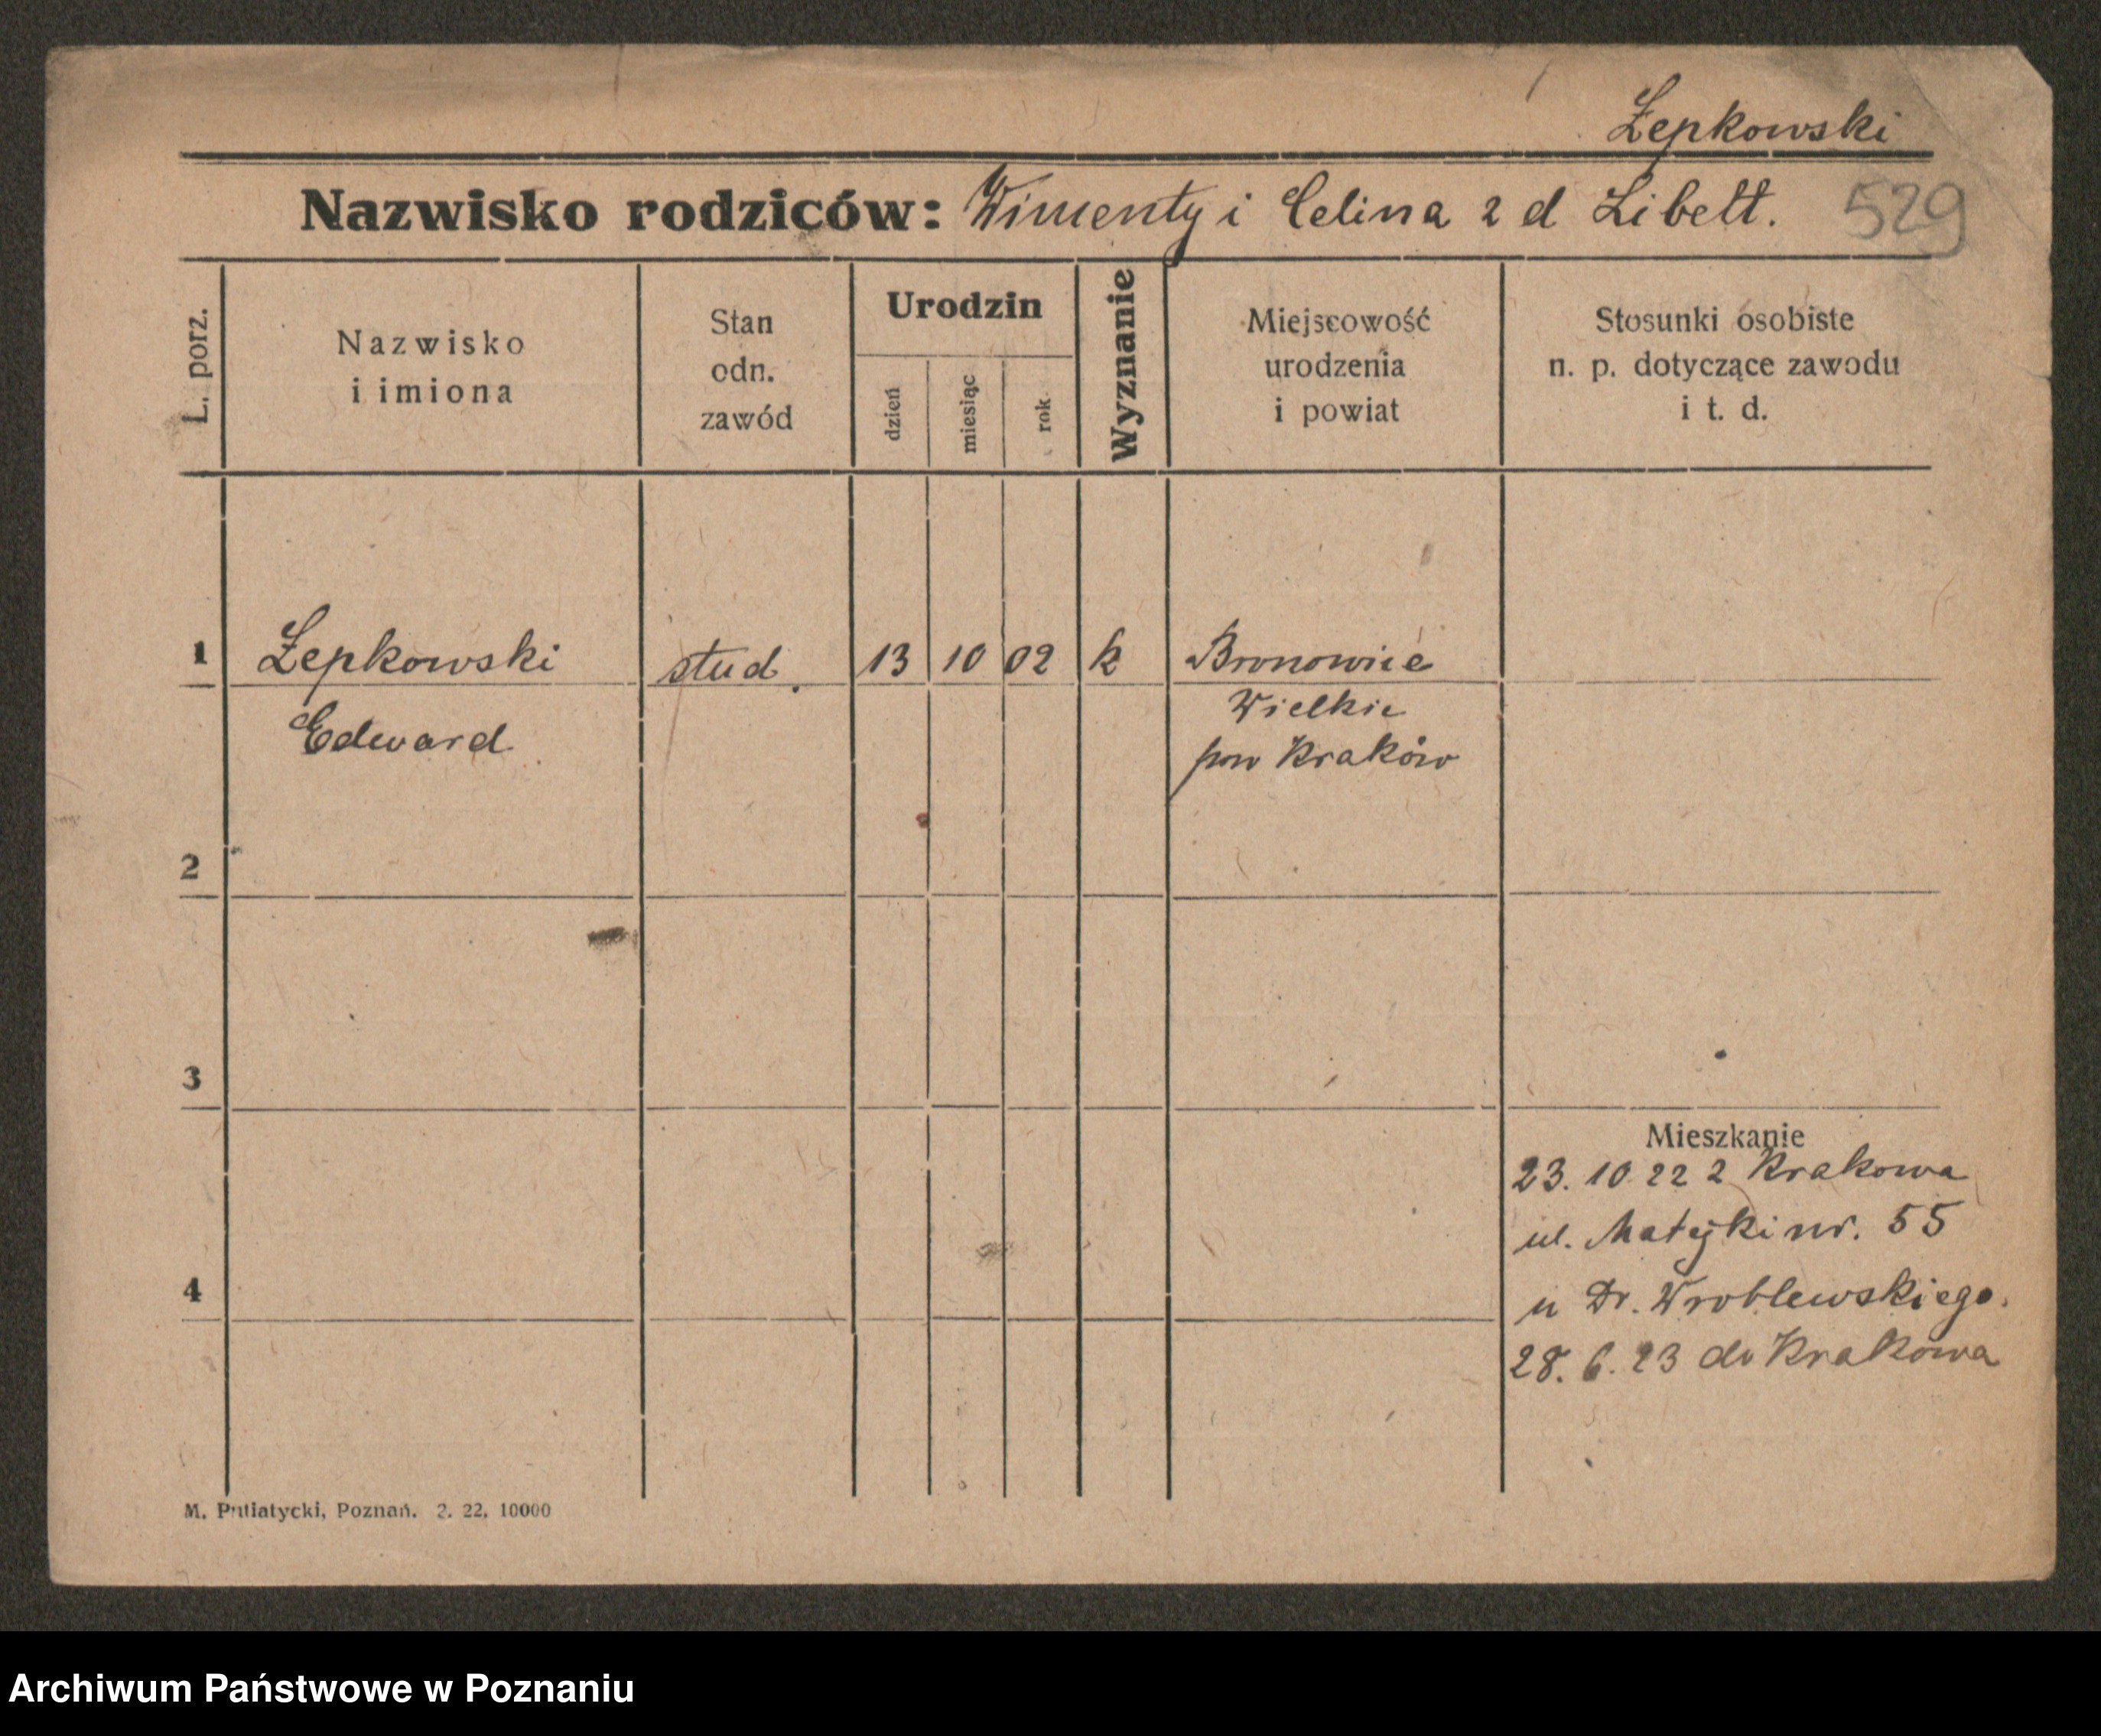 Łepkowski
Nazwisko rodziców: Wincenty i Celina z d Libelt.
529
L. porz.
Nazwisko
i imiona
Stan
odn.
zawód
Urodzin
dzień
miesiąc
rok
Wyznanie
Miejscowość
urodzenia
i powiat
Stosunki osobiste
n. p. dotyczące zawodu
i t. d.
1 Łepkowski stud. 13 10 02 k Bronowice
Edward Wielkie
pow Kraków
2
3
Mieszkanie
23. 10 22 z Krakowa
ul. Matejki nr. 55
4
u Dr. Wroblewskiego.
28. 6. 23 do Krakowa
M. Putiatycki, Poznań. 2. 22. 10000
Archiwum Państwowe w Poznaniu